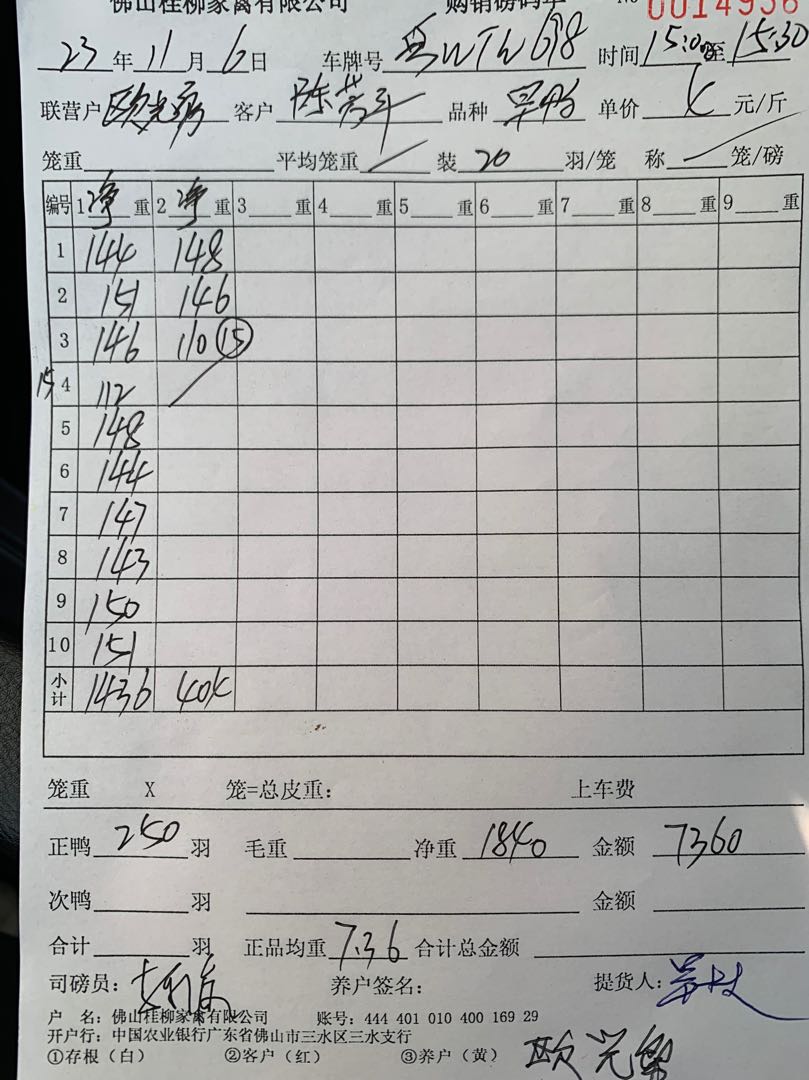 佛山桂柳家禽有限公司 购销磅码单 No 0014936
23年11月6日 车牌号 WTW698 时间15:0至15:30
联营户 客户 陈 品种 单价 4 元/斤
笼重 平均笼重 / 装 20 羽/笼 称 / 笼/磅
编号 1净重 2净重 3重 4重 5重 6重 7重 8重 9重
1 144 148
2 151 146
3 146 110 15
15 4 112
5 148
6 144
7 147
8 143
9 150
10 151
小计 1436 404
笼重 X 笼=总皮重: 上车费
正鸭 250 羽 毛重 净重 1840 金额 7360
次鸭 羽 金额
合计 羽 正品均重 7.36 合计总金额
司磅员: 养户签名: 提货人:
户 名: 佛山桂柳家禽有限公司 账号: 444 401 010 400 169 29
开户行: 中国农业银行广东省佛山市三水区三水支行
①存根(白) ②客户(红) ③养户(黄) 欧